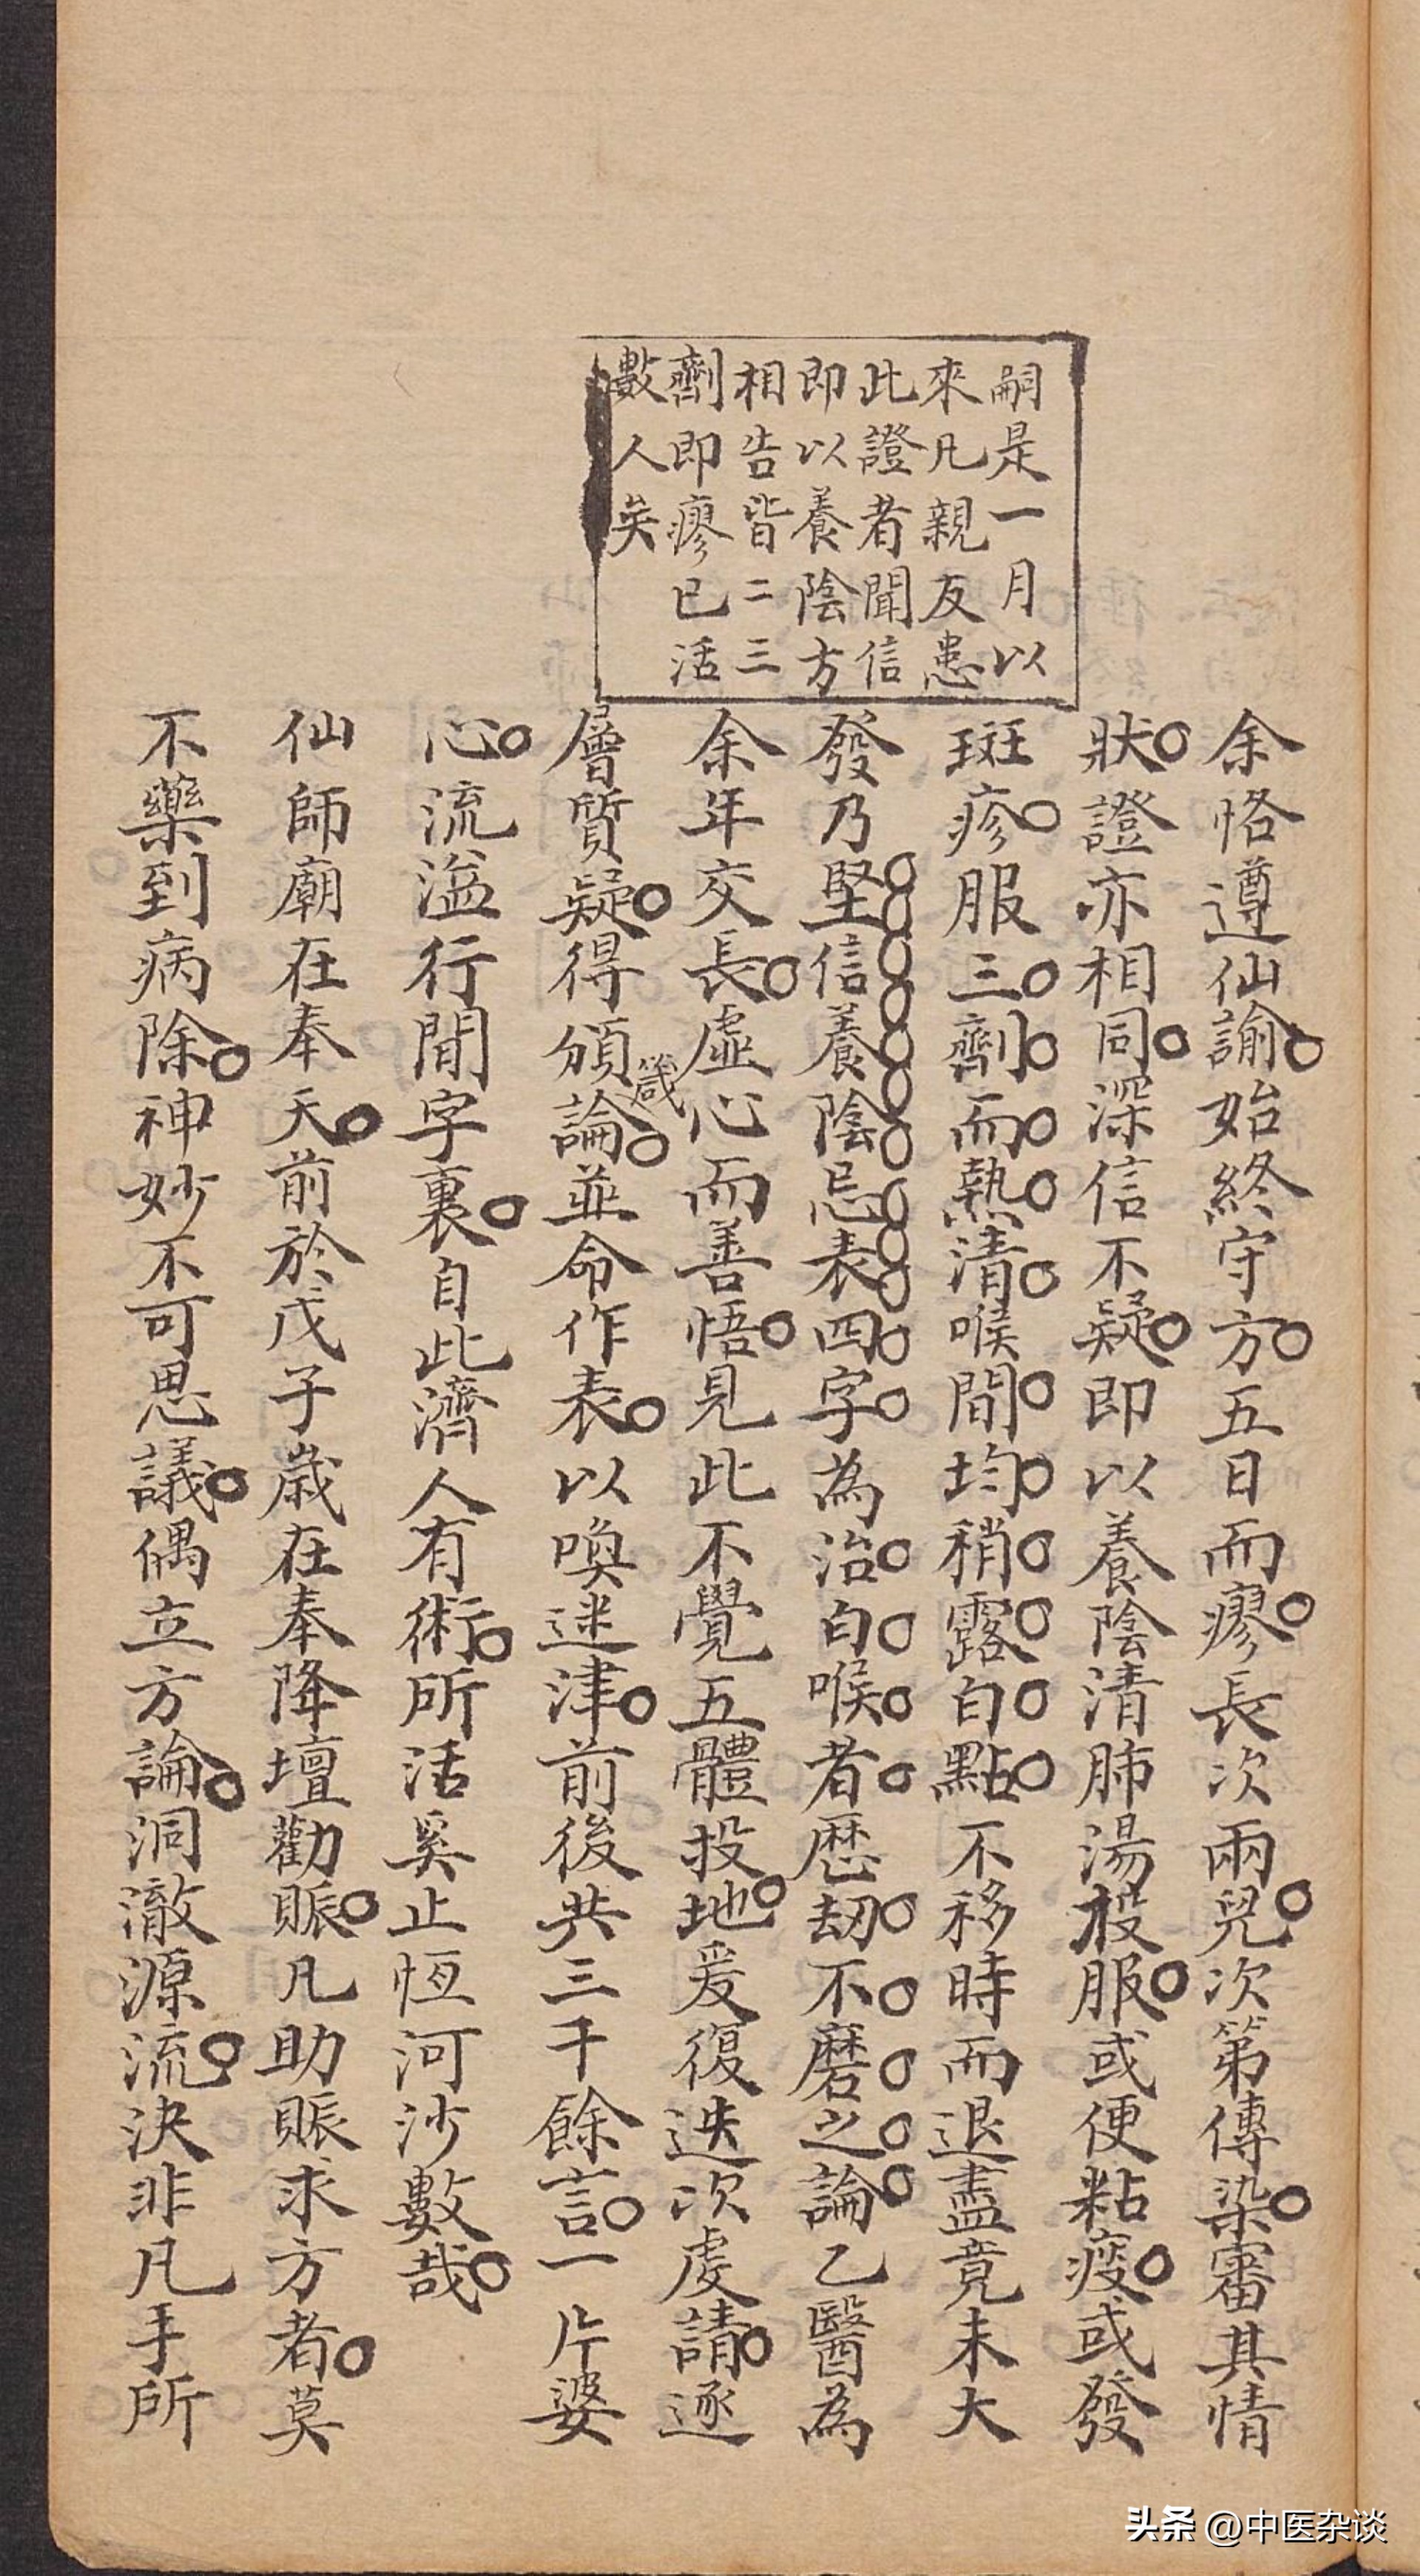 嗣是一月以
來凡親友患
此證者聞信
即以養陰方
相告皆二三
劑即瘳已活
數人矣
余恪遵仙諭始終守方五日而瘳長次兩兒次第傳染審其情
狀證亦相同深信不疑即以養陰清肺湯投服或便粘疫或發
斑疹服三劑而熱清喉間均稍露白點不移時而退盡竟未大
發乃堅信養陰忌表四字為治白喉者歷劫不磨之論乙醫為
余年交長虛心而善悟見此不覺五體投地爰復迭次虔請逐
層質疑得頒論箴並命作表以喚迷津前後共三千餘言一片婆
心流溢行間字裏自此濟人有術所活奚止恆河沙數哉
仙師廟在奉天前於戊子歲在奉降壇勸賑凡助賑求方者莫
不藥到病除神妙不可思議偶立方論洞澈源流決非凡手所
头条 @中医杂谈